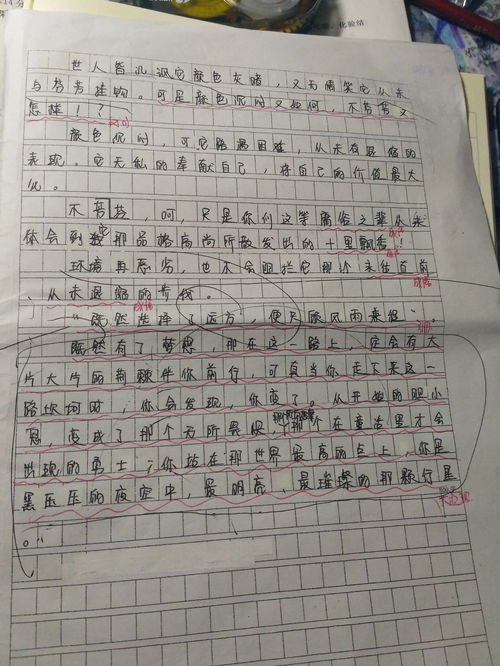 14分
化验结
世人皆讥讽它颜色灰暗，又无情笑它从未
与芬芳挂钩。可是颜色灰暗又如何，不芳芳又
怎样！？
颜色灰暗，可它路遇困难，从未有退缩的
表现。它无私的奉献自己，将自己的价值最大
化。
不芳芳，呵，只是你们这等庸俗之辈从未
体会到它那品格高尚所散发出的十里飘香！
环境再恶劣，也不会阻拦它那个未往直前
、从未退缩的
"既然选择了远方，便只顾风雨兼程"。
既然有了梦想，那在这一路上，定会有大
片大片的荆棘伴你前行，可真当你走下来这一
路坎坷时，你会发现，你变了。从开始的胆小
，变成了那个无所畏惧，那个在童话里才会
出现的勇士；你站在那世界最高的点上，你是
黑压压的夜空中，最明亮、最璀璨的那颗行星
。